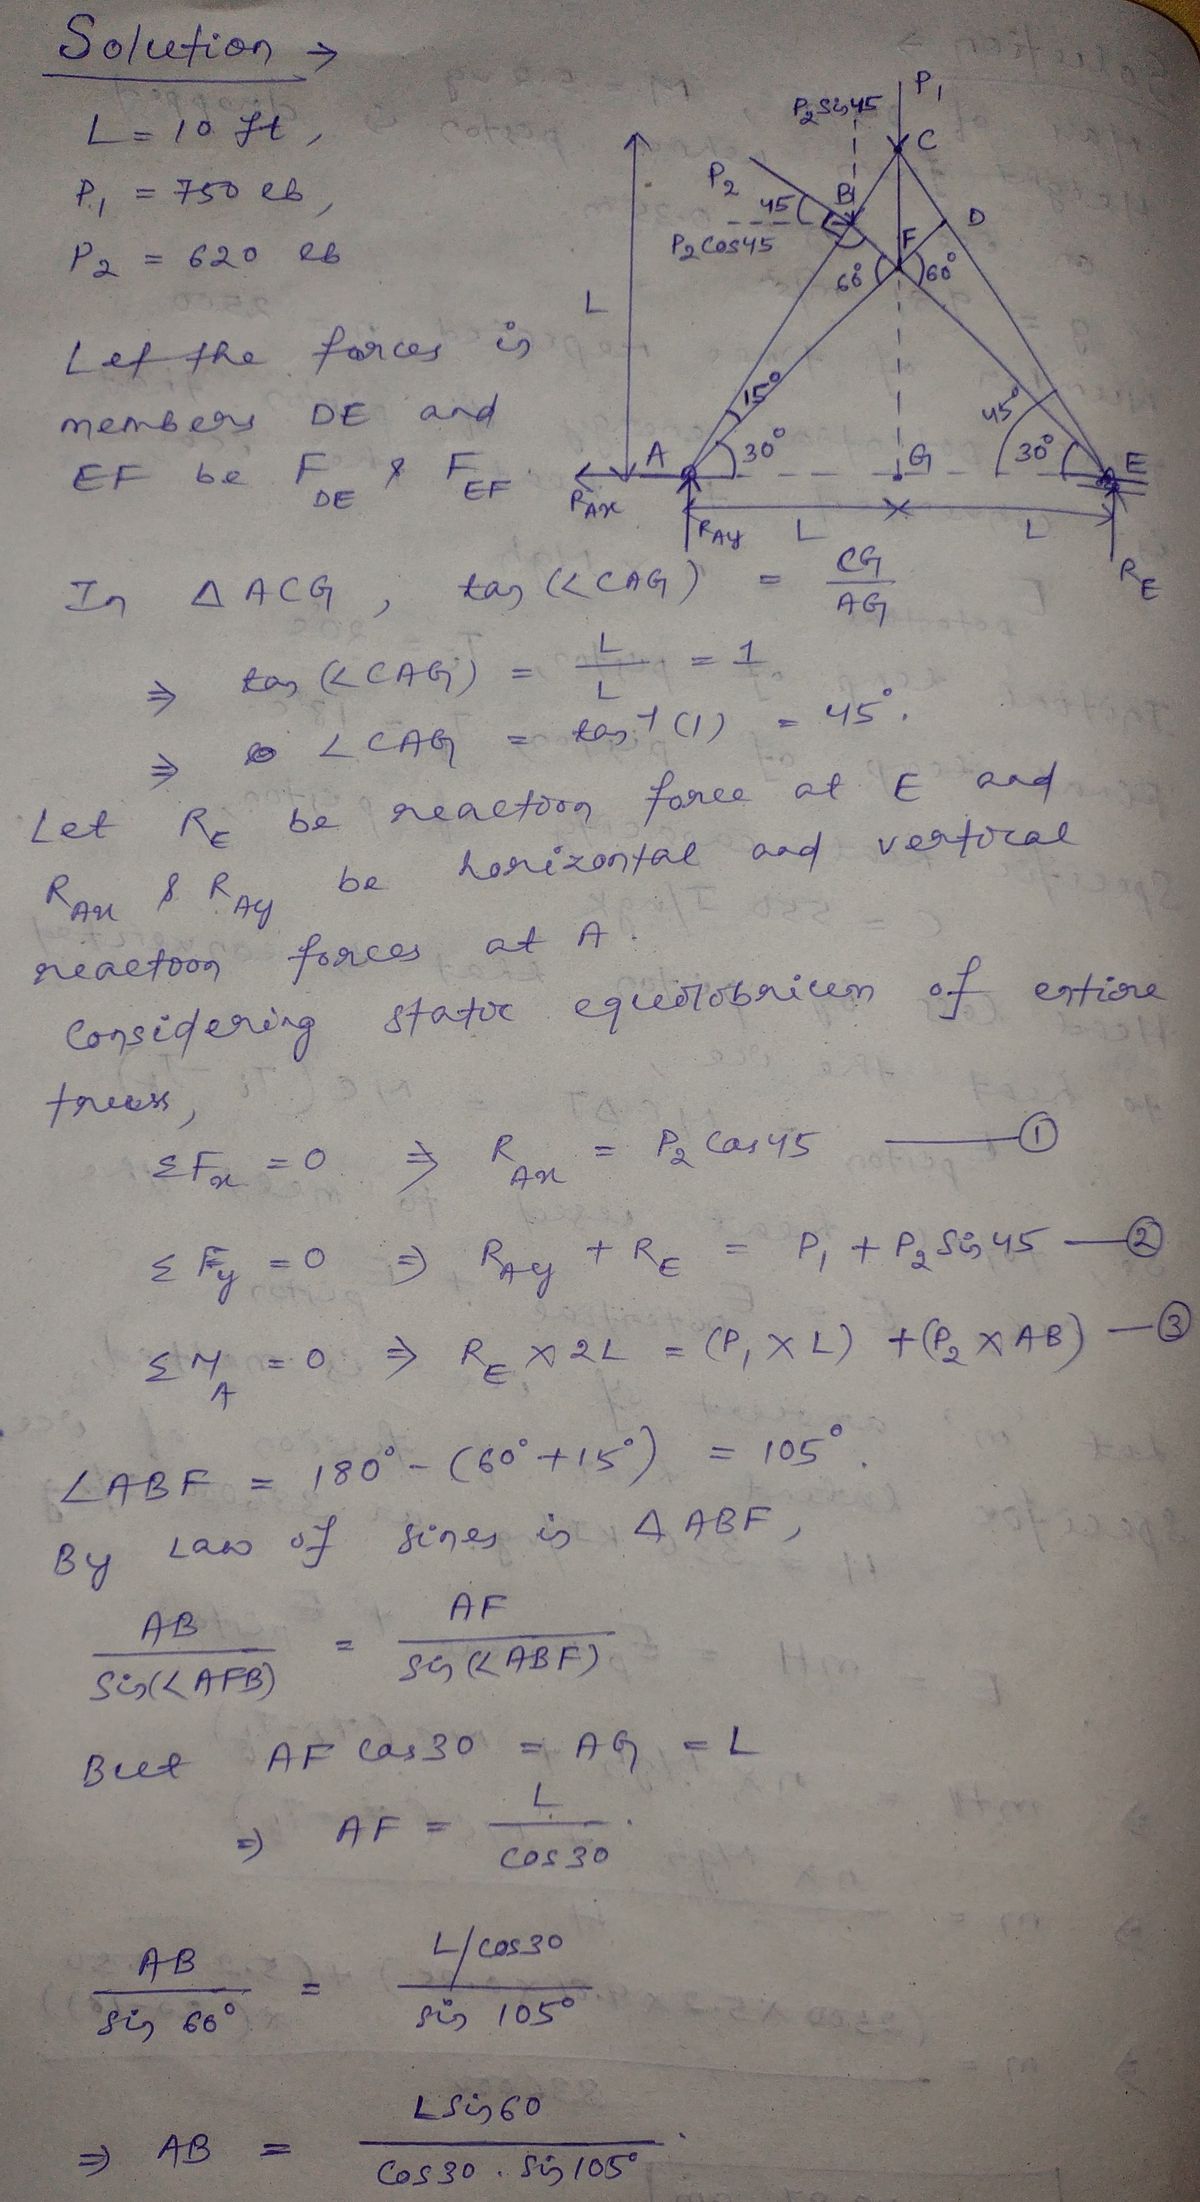 Solution →
L = 10 ft,
P₁ = 750 lb,
P₂ = 620 lb
Let the forces in
members DE and
EF be F_DE & F_EF.
P₁
P₂ Sin45
C
P₂
45
B
D
P₂ Cos45
F
60°
60°
L
15°
45°
A
30°
G
30°
E
R_Ax
R_Ay
L
L
R_E
In △ ACG, tan (∠CAG) = CG/AG
⇒ tan (∠CAG) = L/L = 1
⇒ ∠CAG = tan⁻¹ (1) = 45°.
Let R_E be reaction force at E and
R_Ax & R_Ay be horizontal and vertical
reaction forces at A.
Considering static equilibrium of entire
truss,
ΣF_x = 0 ⇒ R_Ax = P₂ Cos45 — ①
ΣF_y = 0 ⇒ R_Ay + R_E = P₁ + P₂ Sin45 — ②
ΣM_A = 0 ⇒ R_E × 2L = (P₁ × L) + (P₂ × AB) — ③
∠ABF = 180° - (60° + 15°) = 105°.
By Law of sines in △ ABF,
AB/Sin(∠AFB) = AF/Sin(∠ABF)
But AF Cos30 = AG = L
⇒ AF = L/Cos30.
AB/Sin 60° = L/Cos30/Sin 105°
⇒ AB = L Sin60/Cos30 . Sin105°.